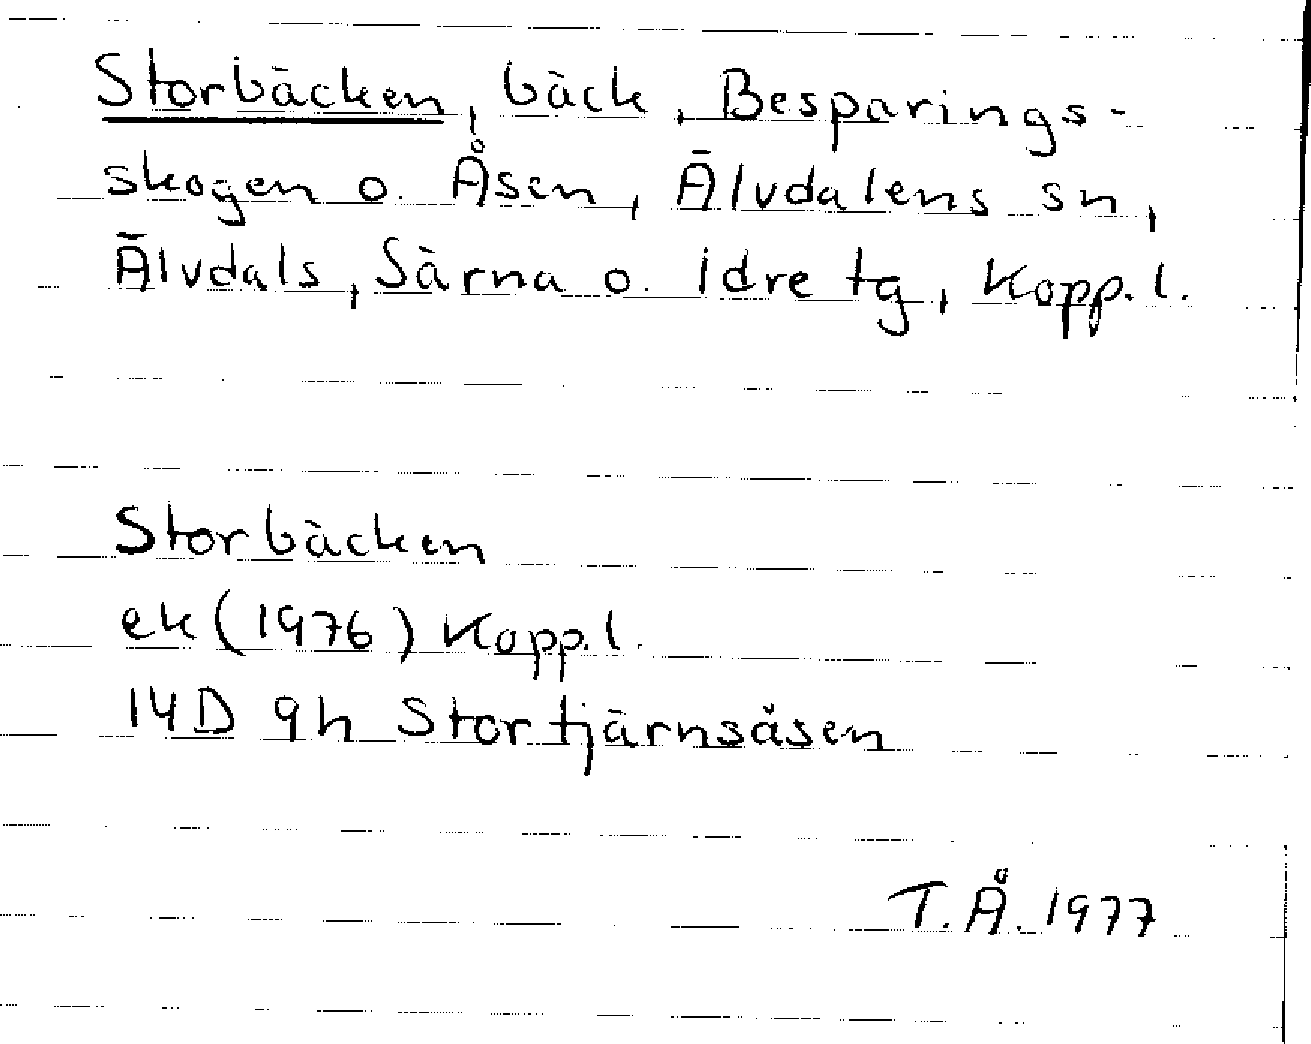 Storbäcken, bäck, Besparings-
skogen o. Åsen, Älvdalens sn,
Älvdals, Särna o. Idre tg, Kopp. l.
Storbäcken
ek (1976) Kopp. l.
14D 9h Stortjärnsåsen
T. Å. 1977